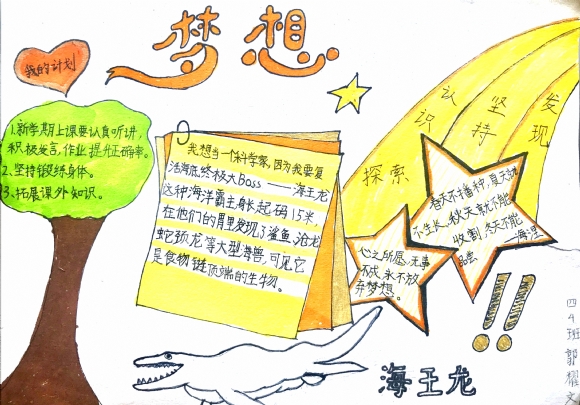 梦想
我的计划
1.新学期上课要认真听讲,
积极发言,作业提升正确率。
2、坚持锻练身体。
3、拓展课外知识。
我想当一个科学家,因为我要复
活海底终极大Boss——海王龙
这种海洋霸主身长起码15米,
在他们的胃里发现了鲨鱼、沧龙
蛇颈龙等大型海兽,可见它
是食物链顶端的生物。
探索
认识
坚持
发现
春天不播种,夏天就
不生长,秋天就不能
收割,冬天不能
品尝
——海涅
心之所愿,无事
不成,永不放
弃梦想。
!!
海王龙
四4班 郭耀文